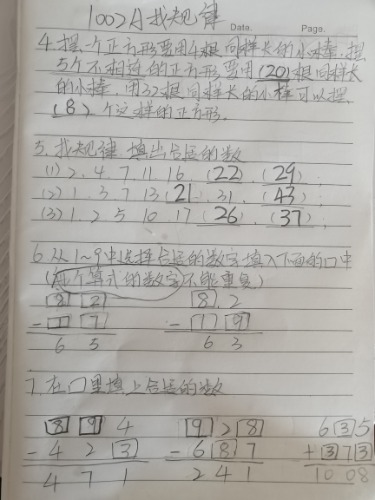 100以内找规律
Date. Page.
4.摆一个正方形要用4根同样长的小棒,摆
5个不相连的正方形要用(20)根同样长
的小棒,用32根同样长的小棒可以摆
(8)个这样的正方形。
5.找规律 填出合适的数
(1) 2. 4. 7. 11 16 (22). (29);
(2) 1. 3. 7 13 (21). 31. (43)
(3) 1. 2 5 10 17 (26) (37);
6.从1~9中选择合适的数字填入下面的口中
(每个算式的数字不能重复)
8 2 8 2
- 1 7 - 1 9
6 5 6 3
7.在口里填上合适的数
8 9 4 9 2 8 6 3 5
- 4 2 3 - 6 8 7 + 3 7 3
4 7 1 2 4 1 10 0 8